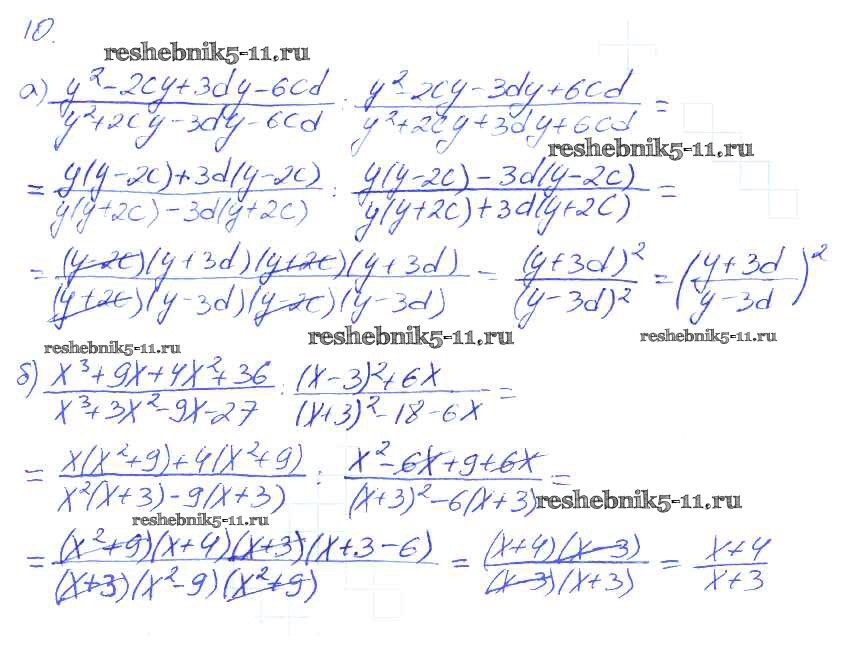 10.
reshebnik5-11.ru
а) (y² - 2cy + 3dy - 6cd)/(y² + 2cy - 3dy - 6cd) : (y² - 2cy - 3dy + 6cd)/(y² + 2cy + 3dy + 6cd) =
reshebnik5-11.ru
= (y(y - 2c) + 3d(y - 2c))/(y(y + 2c) - 3d(y + 2c)) : (y(y - 2c) - 3d(y - 2c))/(y(y + 2c) + 3d(y + 2c)) =
= ((y - 2c)(y + 3d)(y + 2c)(y + 3d))/((y + 2c)(y - 3d)(y - 2c)(y - 3d)) = (y + 3d)²/(y - 3d)² = ((y + 3d)/(y - 3d))²
reshebnik5-11.ru reshebnik5-11.ru reshebnik5-11.ru
б) (x³ + 9x + 4x² + 36)/(x³ + 3x² - 9x - 27) : ((x - 3)² + 6x)/((x + 3)² - 18 - 6x) =
= (x(x² + 9) + 4(x² + 9))/(x²(x + 3) - 9(x + 3)) : (x² - 6x + 9 + 6x)/((x + 3)² - 6(x + 3)) =
reshebnik5-11.ru
reshebnik5-11.ru
= ((x² + 9)(x + 4)(x + 3)(x + 3 - 6))/((x + 3)(x² - 9)(x² + 9)) = ((x + 4)(x - 3))/((x - 3)(x + 3)) = (x + 4)/(x + 3)